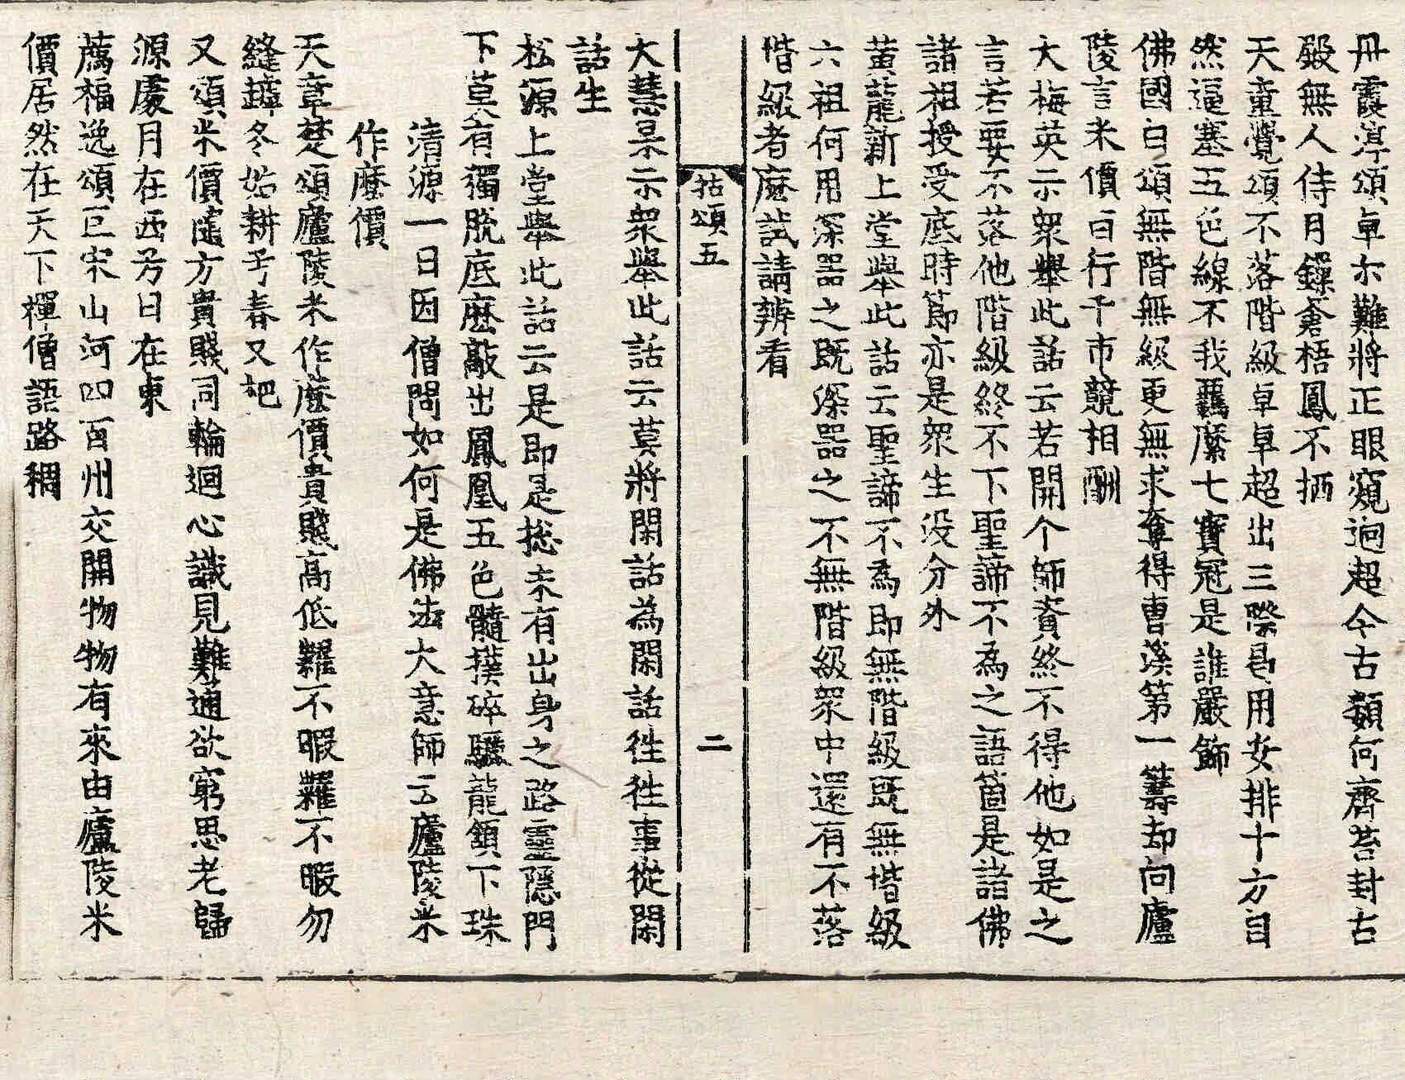 丹霞淳頌卓尒難將正眼窺逈超今古類何齊苔封古
殿無人侍月鏁蒼梧鳳不栖
天童覺頌不落階級卓卓超出三際曷用安排十方自
然逼塞五色線不我羈縻七寶冠是誰嚴飾
佛國白頌無階無級更無求奪得曹溪第一籌却向廬
陵言米價百行千市競相酬
大梅英示衆舉此話云若開个師資終不得他如是之
言若要不落他階級終不下聖諦不為之語箇是諸佛
諸祖授受底時莭亦是衆生没分外
黄龍新上堂舉此話云聖諦不為即無階級既無堦級
六祖何用深器之既深器之不無階級衆中還有不落
階級者麽試請辨看
拈頌五 二
大慧杲示衆舉此話云莫將閑話為閑話徃徃事從閑
話生
松源上堂舉此話云是即是捴未有出身之路靈隱門
下莫有獨脱底麽敲出鳳凰五色髓撲碎驪龍頷下珠
清源一日因僧問如何是佛法大意師云廬陵米
作麽價
天章楚頌廬陵米作麽價貴賤高低糶不暇糴不暇勿
縫罅冬姑耕兮春又耙
又頌米價隨方貴賤同輪迴心識見難通欲窮思老歸
源處月在西兮日在東
薦福逸頌巨宋山河四百州交開物物有來由廬陵米
價居然在天下禪僧語路稠